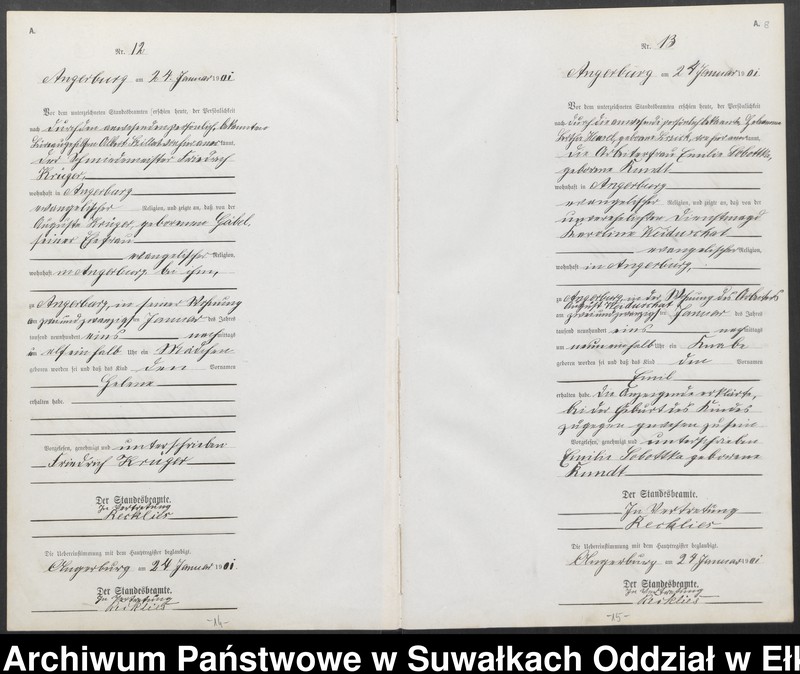 A.
Nr. 12
Angerburg am 24. Januar 1901
Vor dem unterzeichneten Standesbeamten erschien heute, der Persönlichkeit
nach durch den
Albert kannt,
der Schmiedemeister Friedrich
Krüger,
wohnhaft in Angerburg
evangelischer Religion, und zeigte an, daß von der
Auguste Krüger, geborenen Göbel,
seiner Ehefrau
evangelischer Religion,
wohnhaft in Angerburg bei ihm,
zu Angerburg, in seiner Wohnung
am zweiundzwanzigsten Januar des Jahres
tausend neunhundert eins nachmittags
um elf einhalb Uhr ein Mädchen
geboren worden sei und daß das Kind den Vornamen
Helene
erhalten habe.
Vorgelesen, genehmigt und unterschrieben
Friedrich Krüger
Der Standesbeamte.
In Vertretung
Recklies
Die Uebereinstimmung mit dem Hauptregister beglaubigt.
Angerburg am 24 Januar 1901
Der Standesbeamte.
In Vertretung
Recklies
-14-
A. 8
Nr. 13
Angerburg am 24 Januar 1901
Vor dem unterzeichneten Standesbeamten erschien heute, der Persönlichkeit
nach durch die Hebamme
geborene kannt,
die Arbeiterfrau Emilie Sobottka,
geborene Kundt
wohnhaft in Angerburg
evangelischer Religion, und zeigte an, daß von der
unverehelichten Dienstmagd
Karoline Woiduschat
evangelischer Religion,
wohnhaft in Angerburg,
zu Angerburg in der Wohnung des Arbeiters
August Woiduschat
am zweiundzwanzigsten Januar des Jahres
tausend neunhundert eins nachmittags
um neun einhalb Uhr ein Knabe
geboren worden sei und daß das Kind den Vornamen
Emil
erhalten habe. Die Anzeigende erklärte,
bei der Geburt des Kindes
zugegen gewesen zu sein
Vorgelesen, genehmigt und unterschrieben
Emilie Sobottka geborene
Kundt
Der Standesbeamte.
In Vertretung
Recklies
Die Uebereinstimmung mit dem Hauptregister beglaubigt.
Angerburg am 24 Januar 1901
Der Standesbeamte.
In Vertretung
Recklies
-15-
Archiwum Państwowe w Suwałkach Oddział w Ełk